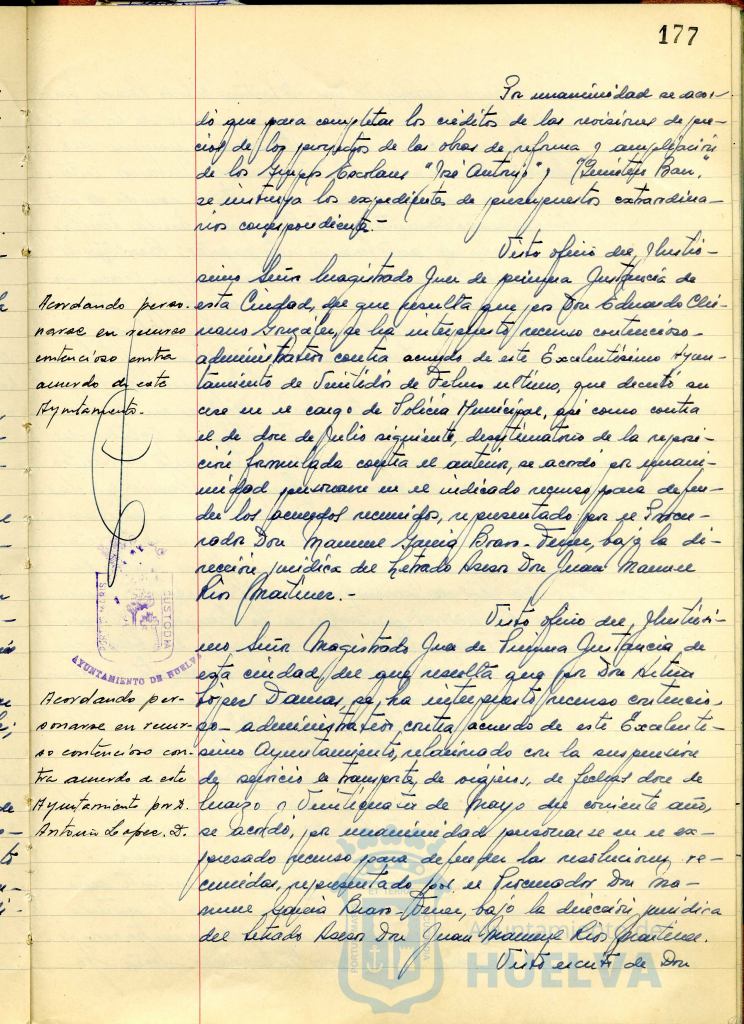 177
Por unanimidad se acor-
dó que para completar los créditos de las revisiones de pre-
cios de los proyectos de las obras de reforma y ampliación
de los Grupos Escolares "José Antonio" y
se instruya los expedientes de presupuestos extraordina-
rios correspondiente.-
Visto oficio del Ilustrí-
simo Señor Magistrado Juez de primera Instancia de
esta Ciudad, del que resulta que por Don Eduardo
González, se ha interpuesto recurso contencioso-
administrativo contra acuerdo de este Excelentísimo Ayun-
tamiento de Veintidós de Febrero último, que decretó su
cese en el cargo de Policía Municipal, así como contra
el de doce de Julio siguiente, desestimatorio de la reposi-
ción formulada contra el anterior, se acordó por unani-
midad personarse en el indicado recurso para defen-
der los acuerdos recurridos, representado por el Procu-
rador Don Manuel García Bravo-Ferrer, bajo la di-
rección jurídica del Letrado Asesor Don Juan Manuel
Ríos Martínez.-
Visto oficio del Ilustrísi-
mo Señor Magistrado Juez de Primera Instancia de
esta ciudad, del que resulta que por Don
López Damas, se ha interpuesto recurso contencio-
so-administrativo, contra acuerdo de este Excelentí-
simo Ayuntamiento, relacionado con la suspensión
de servicio de transporte de viajeros, de fechas doce de
Marzo y Veinticuatro de Mayo del corriente año,
se acordó, por unanimidad personarse en el ex-
presado recurso para defender las resoluciones re-
curridas, representado por el Procurador Don Ma-
nuel García Bravo-Ferrer, bajo la dirección jurídica
del Letrado Asesor Don Juan Manuel Ríos Martínez.
Visto escrito de Don
Acordando perso-
narse en recurso
contencioso contra
acuerdo de este
Ayuntamiento.
CUSTODIA
AYUNTAMIENTO DE HUELVA
Acordando per-
sonarse en recur-
so contencioso con-
tra acuerdo de este
Ayuntamiento por D.
Antonio López. D.
Ayuntamiento de
HUELVA